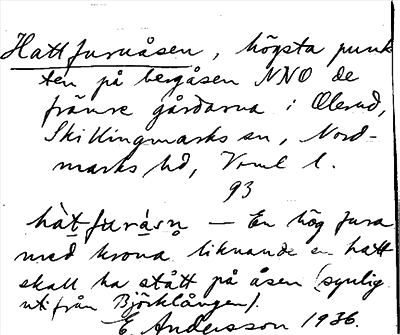 Hattfuruåsen, högsta punk
ten på bergåsen NNO de
främre gårdarna i Olerud,
Skillingmarks sn, Nord-
marks hd, Vrml l.
93
håt furåsn — En hög fura
med krona liknande en hatt
skall ha stått på åsen (synlig
ut ifrån Björklången).
E. Andersson 1936.